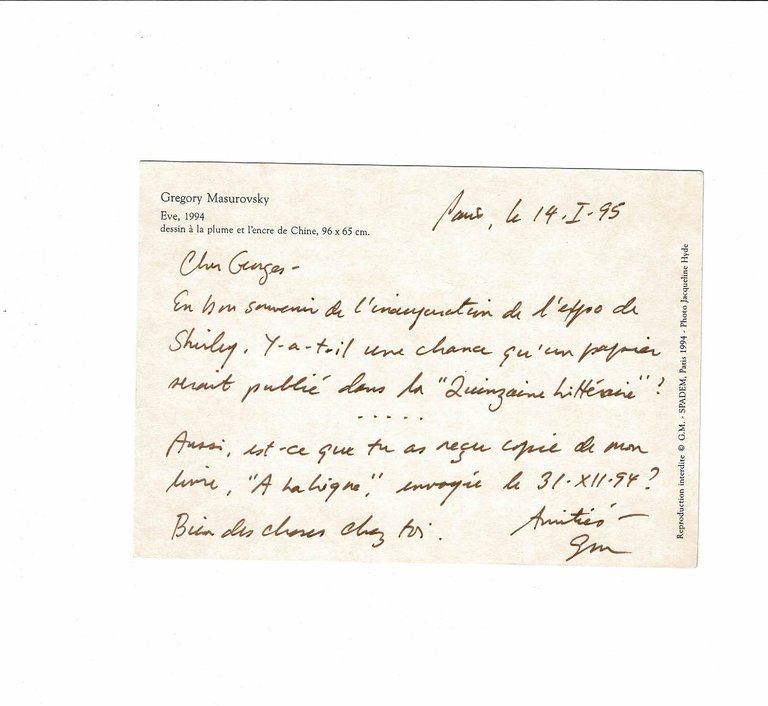 Gregory Masurovsky
Eve, 1994
dessin à la plume et l'encre de Chine, 96 x 65 cm.
Paris, le 14·I·95
Cher Georges -
En bon souvenir de l'inauguration de l'expo de
Shirley. Y-a-t-il une chance qu'un papier
serait publié dans la "Quinzaine Littéraire"?
.....
Aussi, est-ce que tu as reçu copie de mon
livre, "A La Ligne", envoyée le 31·XII·94?
Bien des choses chez toi.
Amitiés -
GM
Reproduction interdite © G.M. - SPADEM, Paris 1994 - Photo Jacqueline Hyde